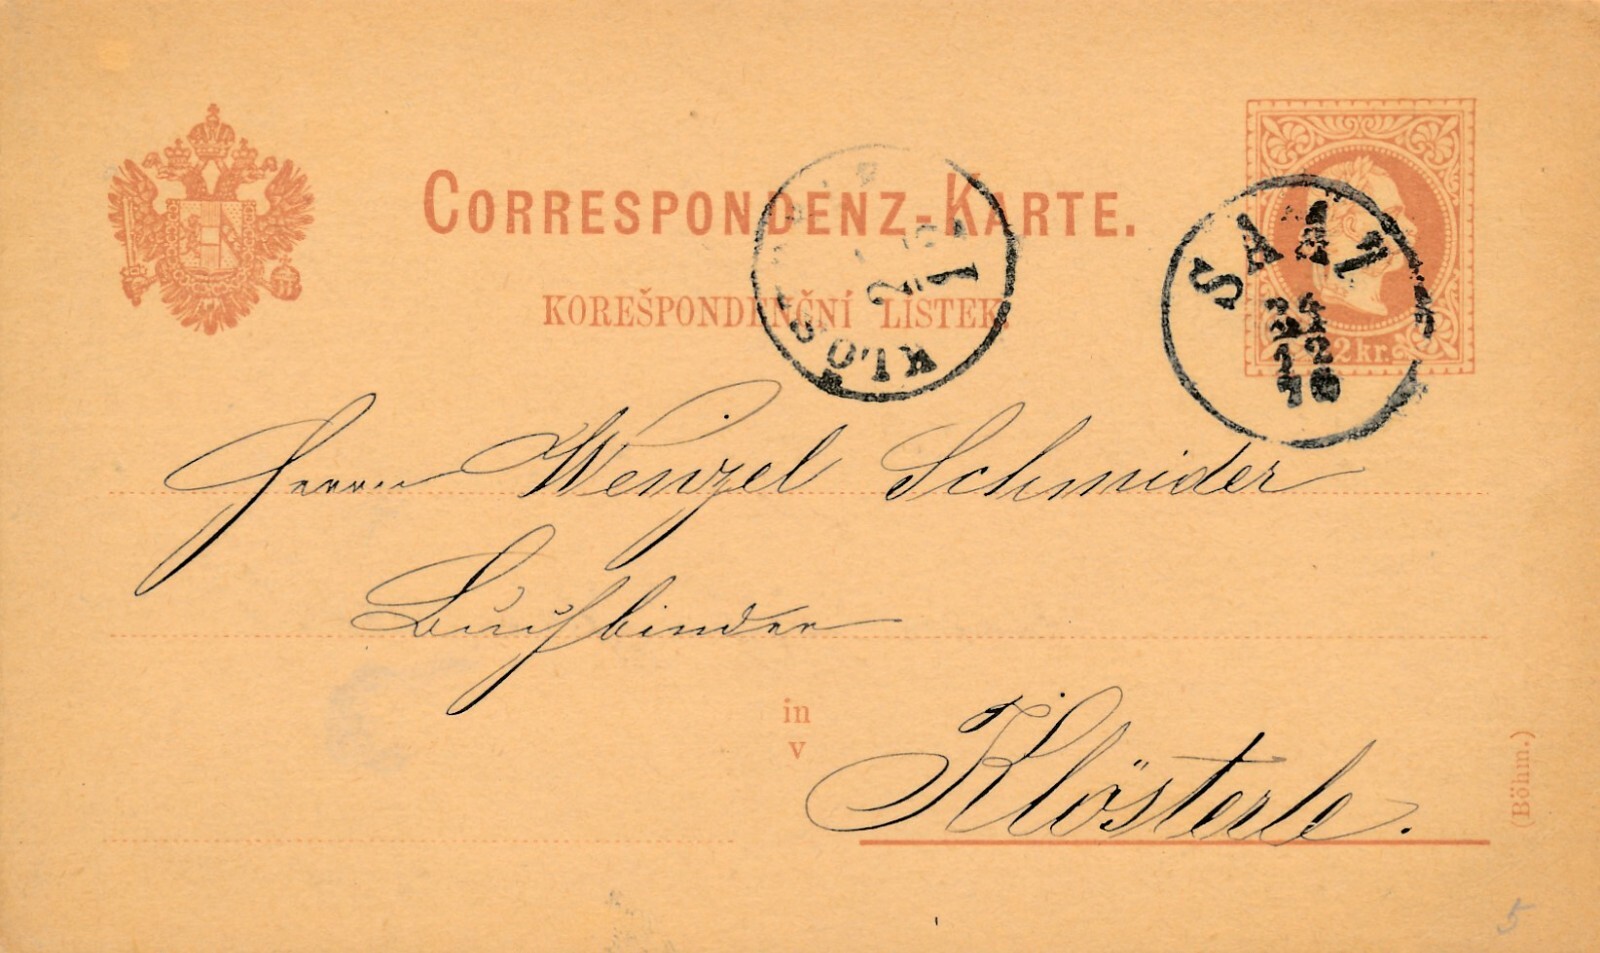 CORRESPONDENZ-KARTE.
KOREŠPONDENČNÍ LÍSTEK.
2kr.
SAAZ
12
KLÖST
2
1
Herrn Wenzel Schmider
Buchbinder
in
v
Klösterle.
(Böhm.)
5